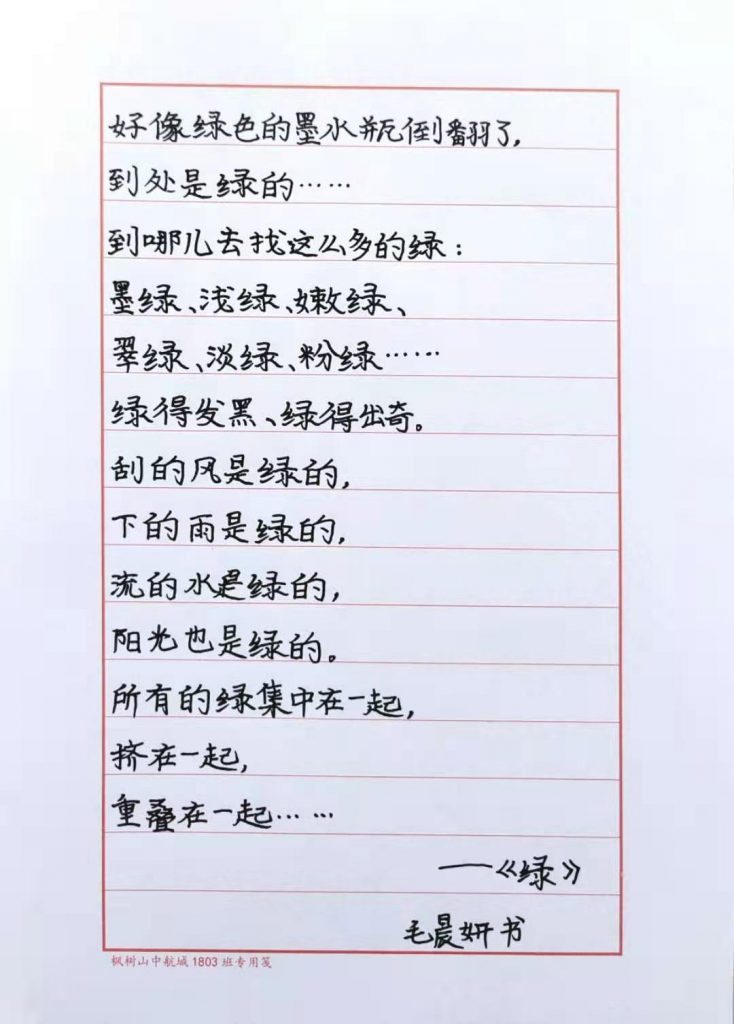 好像绿色的墨水瓶倒翻了,
到处是绿的……
到哪儿去找这么多的绿:
墨绿、浅绿、嫩绿、
翠绿、淡绿、粉绿……
绿得发黑、绿得出奇。
刮的风是绿的,
下的雨是绿的,
流的水是绿的,
阳光也是绿的。
所有的绿集中在一起,
挤在一起,
重叠在一起……
——《绿》
毛晨妍书
枫树山中航城1803班专用笺